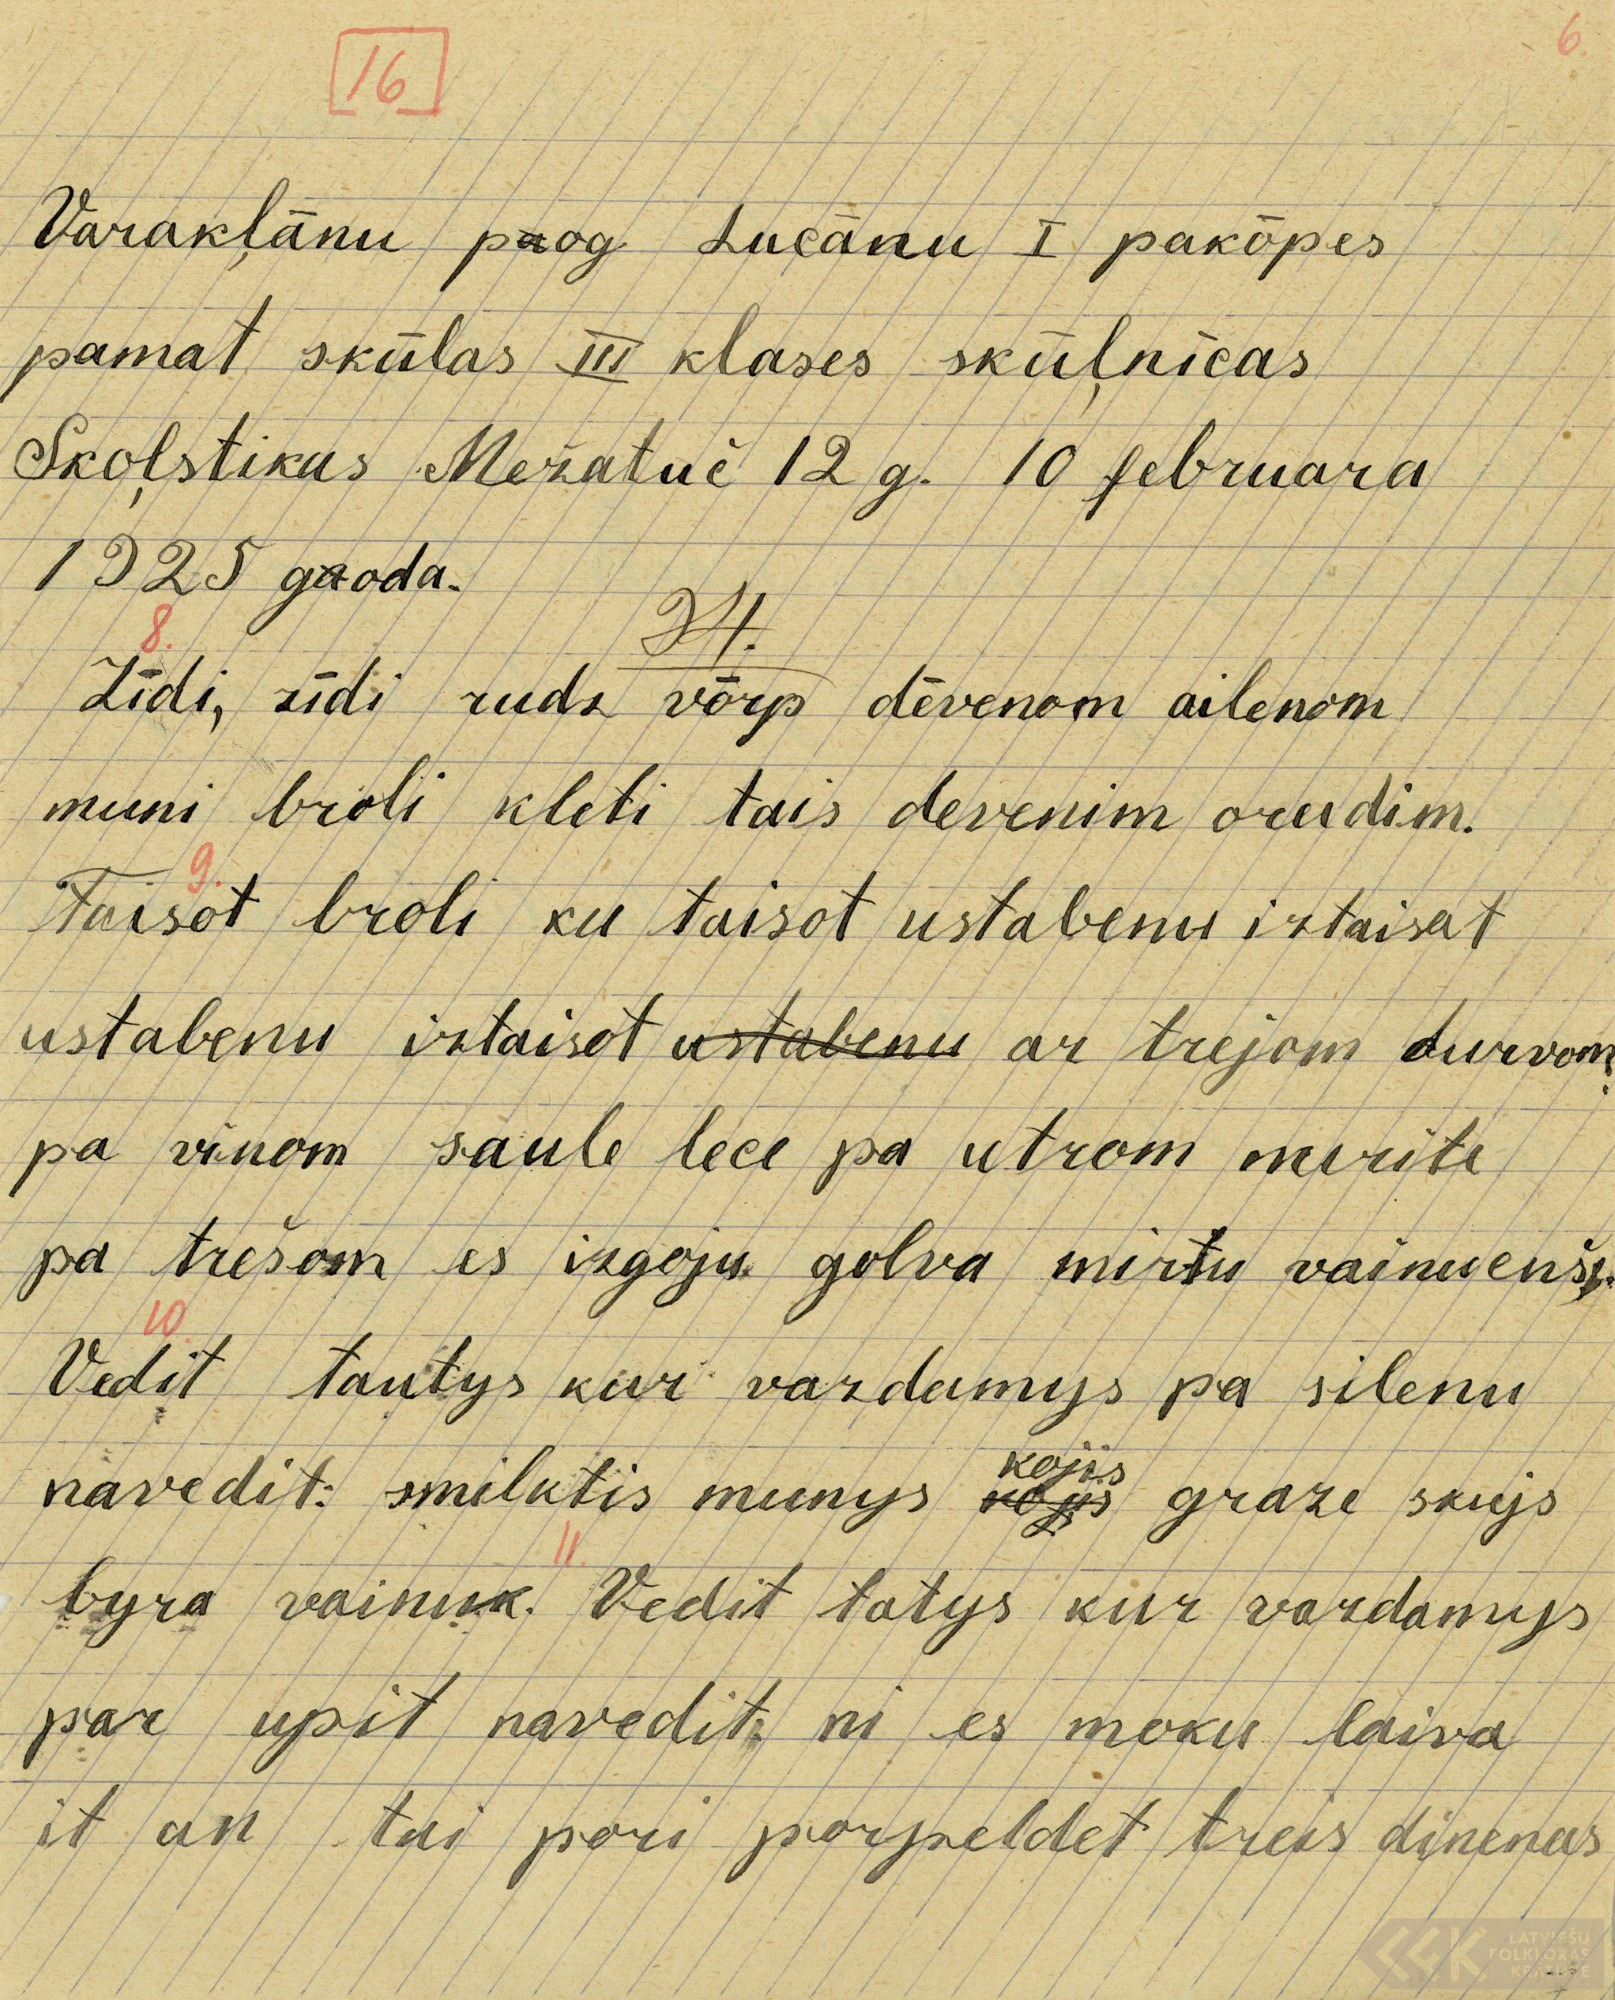 16
6.
Varakļānu paog Lucānu I pakōpes
pamat skūlas III klases skūļnīcas
Skoļstikas Mežatuč 12 g. 10 februara
1925 gaoda.
24.
8.
Zīdi, zīdi rudz vōrp dēvenom ailenom
muni broli kleti tais devenim orudim.
9.
Taisot broli ku taisot ustabenu iztaisat
ustabenu iztaisot ustabenu ar trejom durvom
pa vinom saule lece pa utrom nurite
pa trešom es izgoju golva mirtu vainuenšs.
10.
Vedit tautys kur vazdamys pa silenu
navedit: smilktis munys kojis kojis graze skujs
11.
byra vainuk. Vedit totys kur vazdamys
par upit navedit, ni es moku laiva
it an tai pori porpeldet treis dinenas
LATVIEŠU
FOLKLORAS
KRĀTUVE